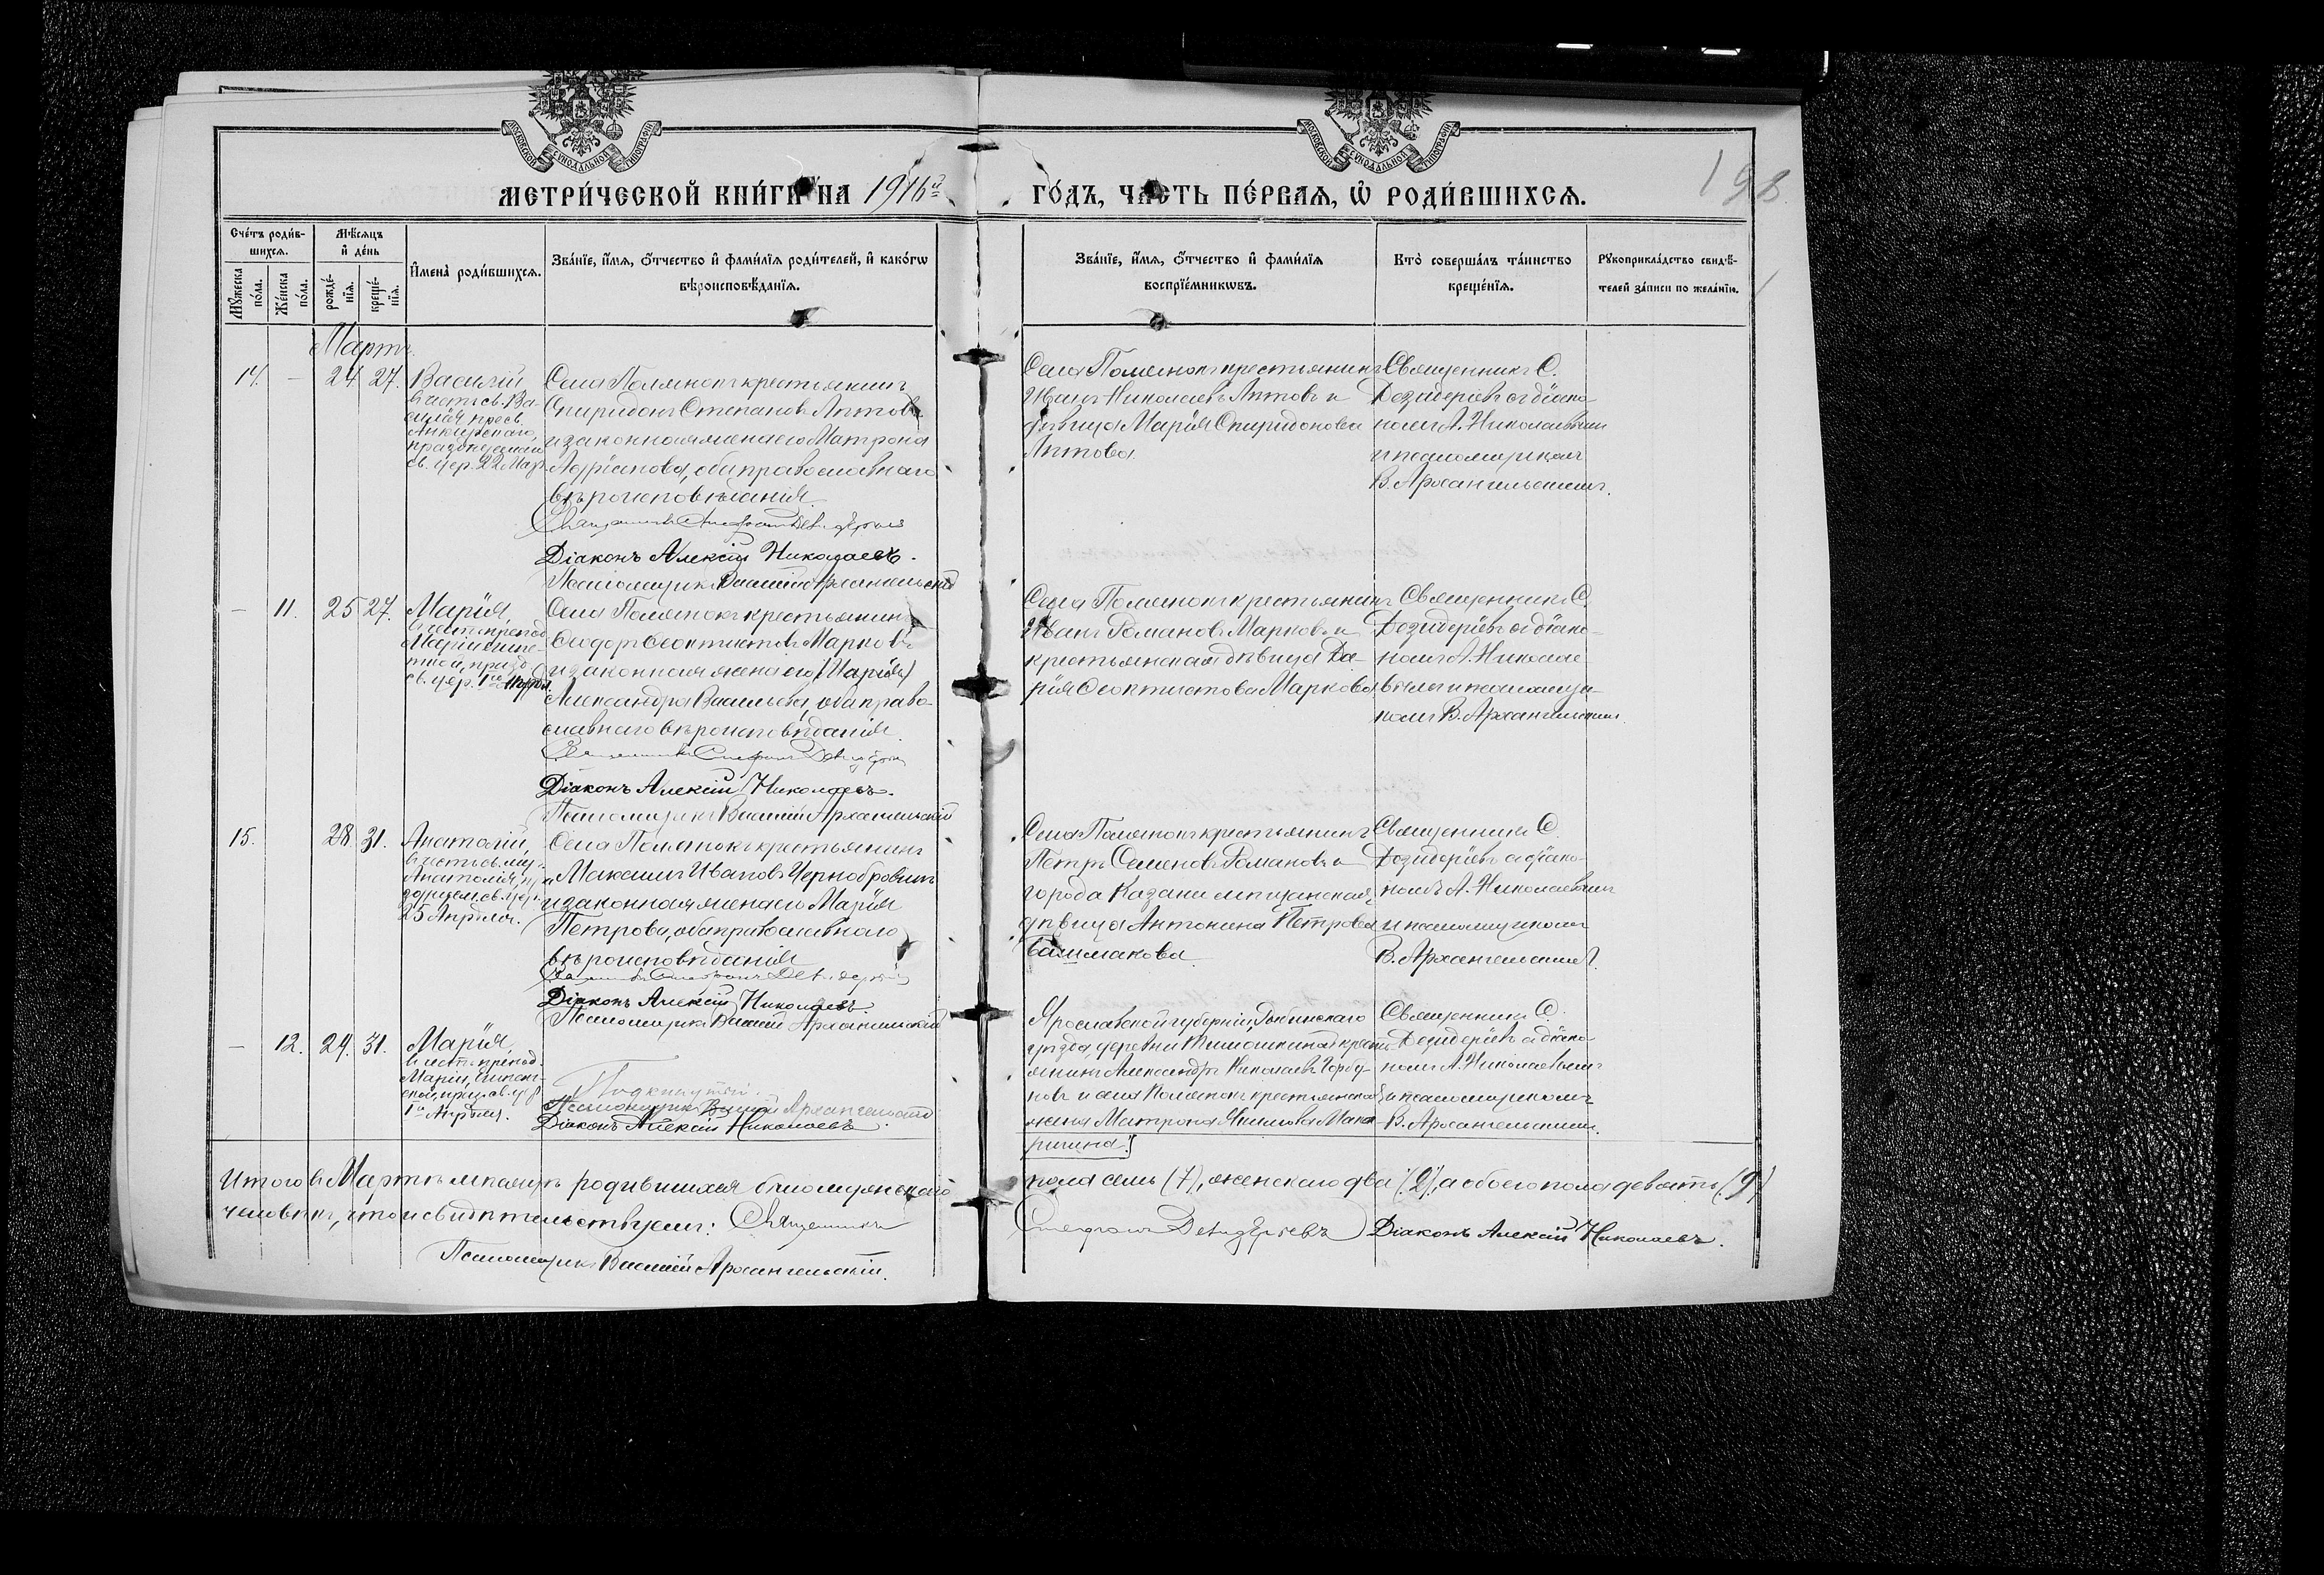 МОСКОВСКОЙ СУНОДАЛЬНОЙ ТИПОГРАФІИ
МОСКОВСКОЙ СУНОДАЛЬНОЙ ТИПОГРАФІИ
МЕТРИ́ЧЕСКОЙ КНИ́ГИ НА 1916й
ГО́ДЪ, ЧА́СТЬ ПЕ́РВАЯ, Ѡ҆ РОДИ́ВШИХСЯ.
198
Сче́тъ роди́в-
шихся.
Мѣ́сяцъ
и҆ де́нь
Мꙋ́жеска
по́ла.
Же́нска
по́ла.
рожде́-
нїя.
креще́-
нїя.
И҆мена̀ роди́вшихся.
Зва́нїе, и҆́мя, ѻ҆́тчество и҆ фами́лїя роди́телей, и҆ како́гѡ
вѣроисповѣ́данїя.
Зва́нїе, и҆́мя, ѻ҆́тчество и҆ фами́лїя
воспрїе́мникѡвъ.
Кто̀ соверша́лъ та́инство
креще́нїя.
Рꙋкоприкла́дство свидѣ́-
телей за́писи по жела́нїю.
Мартъ.
14. — 24 27.
Василій
въ честь св. Ва-
силія, пресв.
Анкирскаго,
празднуемаго
св. цер. 22 Мар.
Села Полянокъ крестьянинъ
Спиридонъ Степановъ Аптовъ
и законная жена его Матрона
Адріанова, оба православнаго
вѣроисповѣданія
Священникъ Стефанъ Дезидерьевъ
Діаконъ Алексій Николаевъ.
Псаломщикъ Василій Архангельскій
Села Полянокъ крестьянинъ
Иванъ Николаевъ Аптовъ и
дѣвица Марія Спиридонова
Аптова
Священникъ С.
Дезидерьевъ съ діако-
номъ А. Николаевымъ
и псаломщикомъ
В. Архангельскимъ.
— 11. 25 27.
Марія,
въ честь препод.
Маріи Египе-
тской, празд.
св. цер. 1го Апрѣля
Села Полянокъ крестьянинъ
Ѳеодоръ Ѳеоктистовъ Марковъ
и законная жена его (Марія)
Александра Васильева, оба право-
славнаго вѣроисповѣданія.
Священникъ Стефанъ Дезидерьевъ
Діаконъ Алексій Николаевъ.
Псаломщикъ Василій Архангельскій
Села Полянокъ крестьянинъ
Иванъ Романовъ Марковъ и
крестьянская дѣвица Да-
рія Ѳеоктистова Маркова
Священникъ С.
Дезидерьевъ съ діако-
номъ А. Николае-
вымъ и псаломщи-
комъ В. Архангельскимъ.
15. 28. 31.
Анатолій,
въ честь св. муч.
Анатолія, пра-
здуемаго св. цер.
23 Апрѣля.
Села Полянокъ крестьянинъ
Максимъ Ивановъ Чернобровинъ
и законная жена его Марія
Петрова, оба православнаго
вѣроисповѣданія
Священникъ Стефанъ Дезидерьевъ
Діаконъ Алексій Николаевъ.
Псаломщикъ Василій Архангельскій
Села Полянокъ крестьянинъ
Петръ Семеновъ Романовъ и
города Казани мѣщанская
дѣвица Антонина Петрова
Башмакова
Священникъ С.
Дезидерьевъ съ діако-
номъ А. Николаевымъ
и псаломщикомъ
В. Архангельскимъ.
— 12. 24. 31.
Марія,
въ честь препод.
Маріи, Египет-
ской, праз. св. цер.
1го Апрѣля.
Подкинутый.
Псаломщикъ Василій Архангельскій
Діаконъ Алексій Николаевъ.
Ярославской губерніи, Рыбинскаго
уѣзда, деревни Тимошкина крест-
янинъ Александръ Николаевъ Горбу-
новъ и села Полянокъ крестьянская
жена Матрона Мака-
ричина.
Священникъ С.
Дезидерьевъ съ діако-
номъ А. Николаевымъ
и псаломщикомъ
В. Архангельскимъ.
Итого въ Мартѣ мѣсяцѣ родившихся было мужескаго
пола семь (7), женскаго два (2), а обоего пола девять (9)
человѣкъ, что и свидѣтельствуемъ: Священникъ
Стефанъ Дезидерьевъ Діаконъ Алексій Николаевъ.
Псаломщикъ Василій Архангельскій.